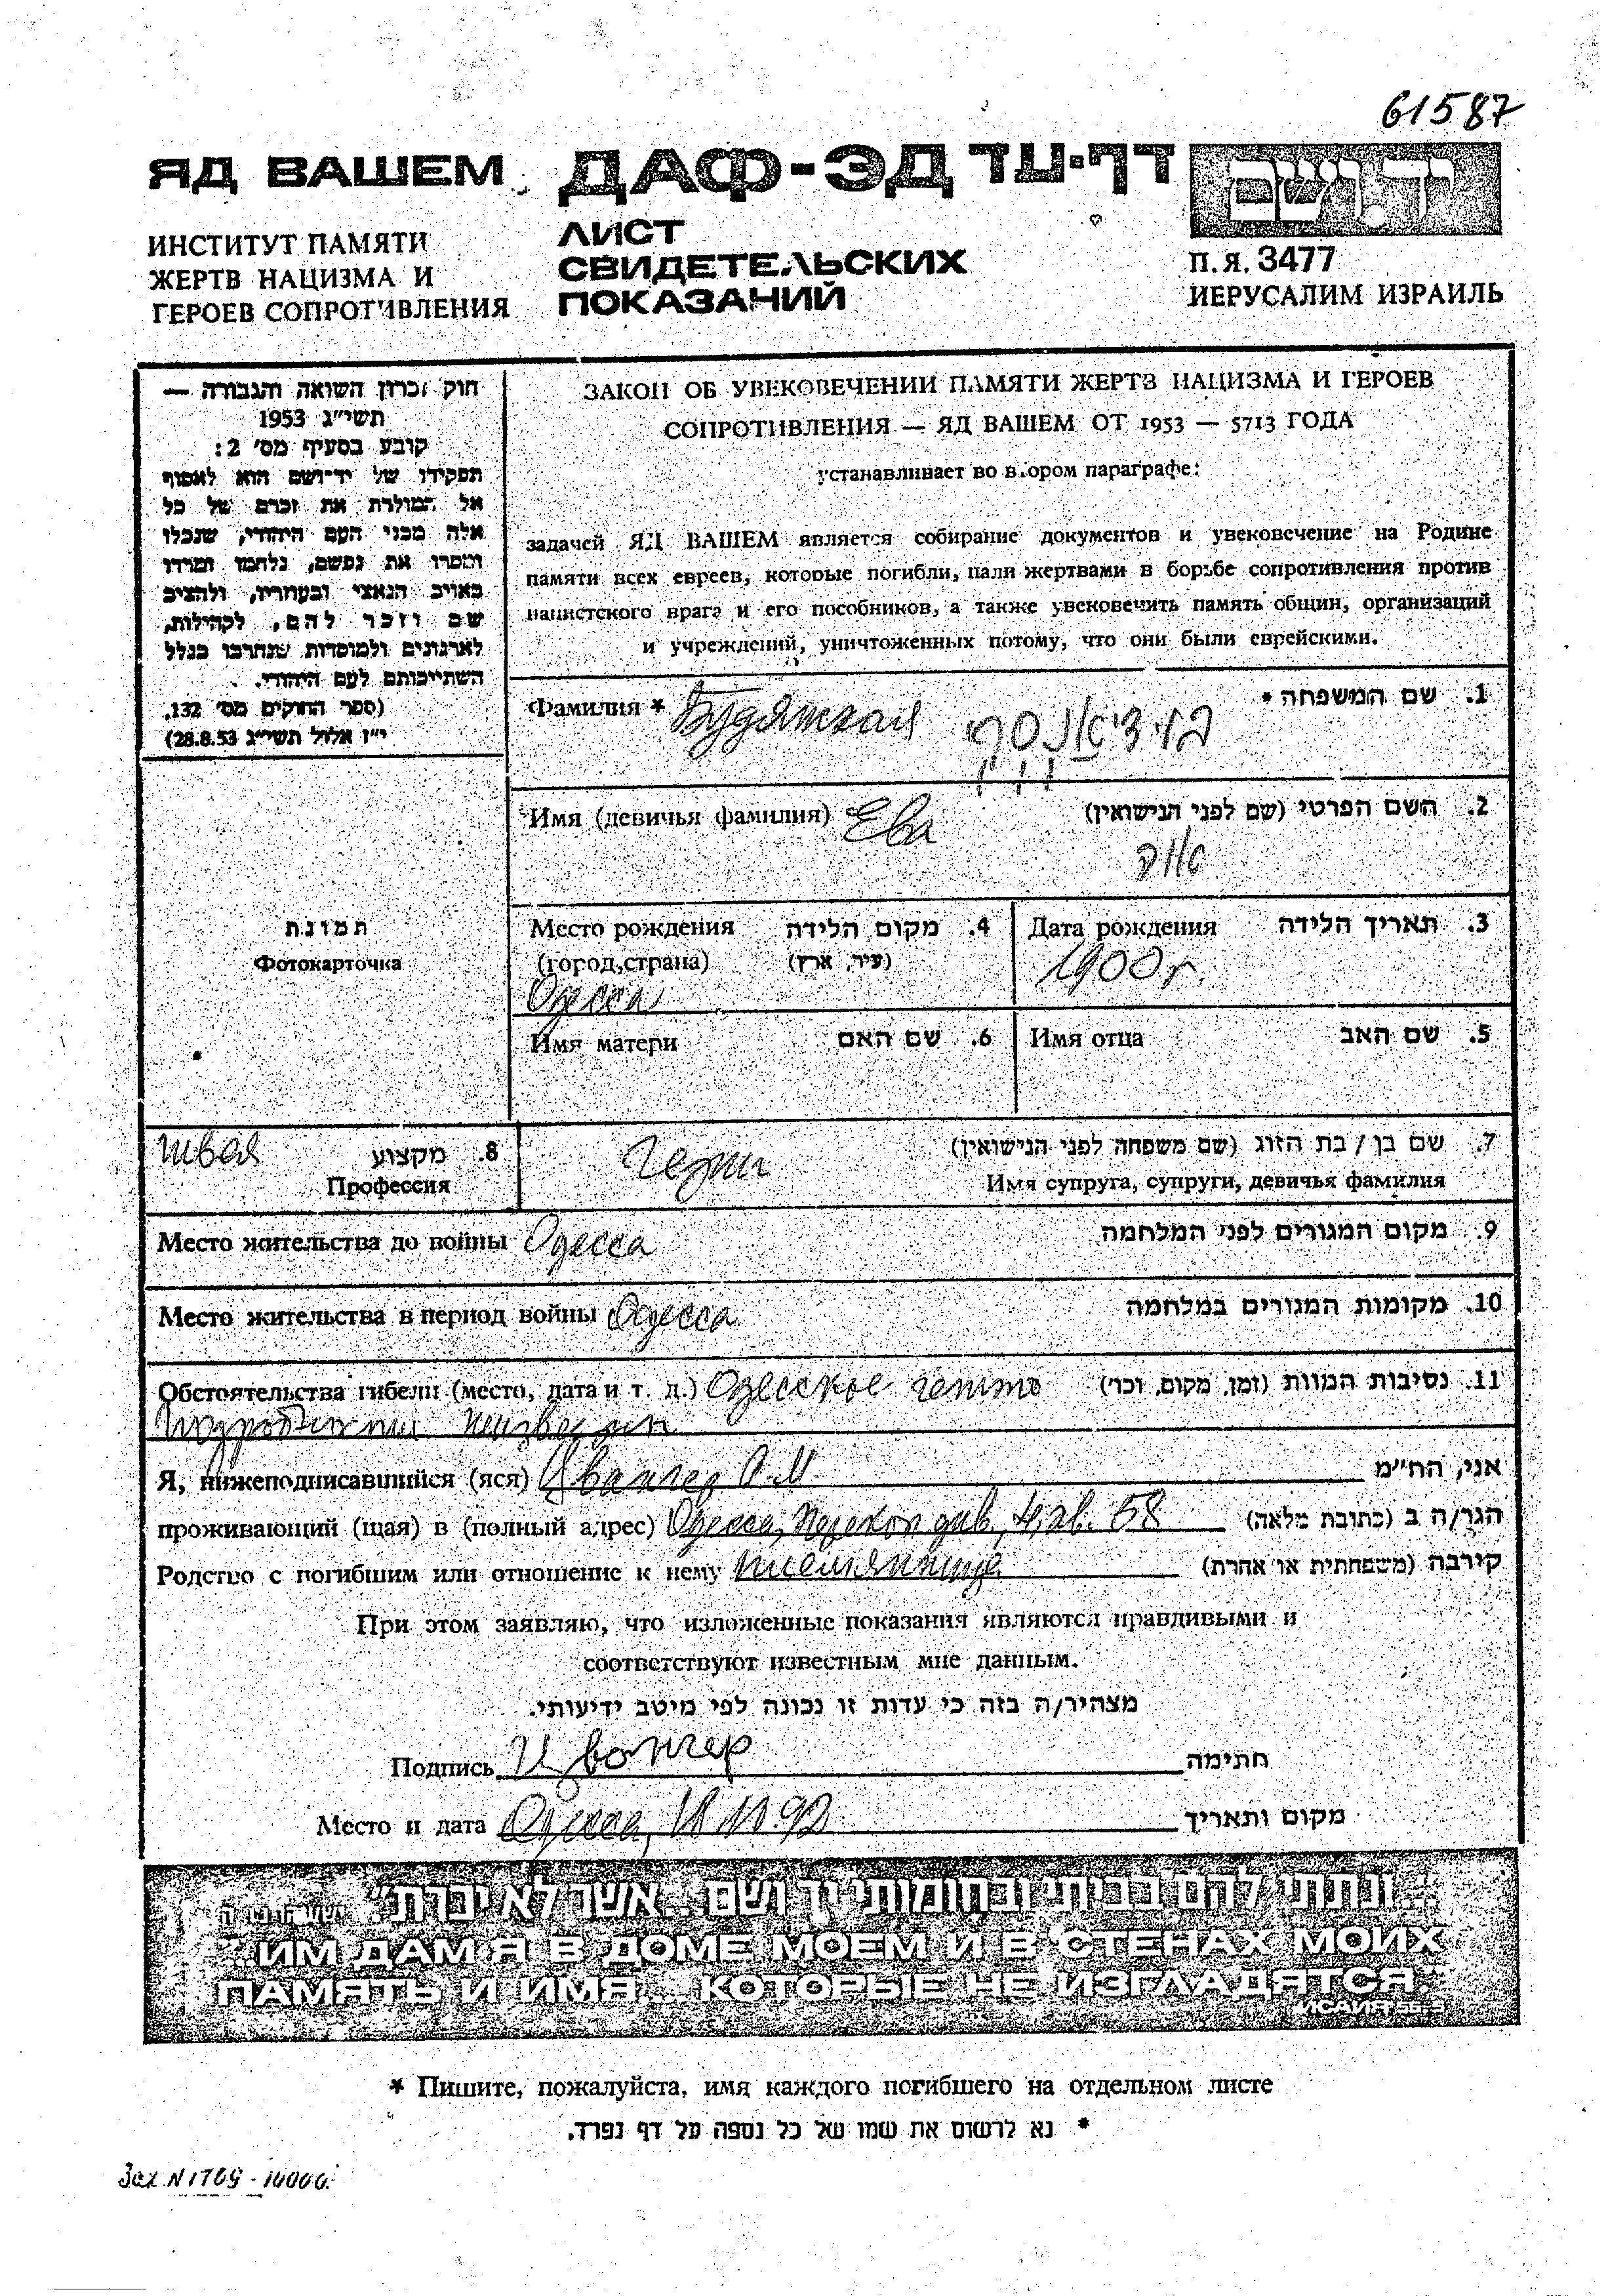 61587
ЯД ВАШЕМ
ДАФ-ЭД דף-עד
יד ושם
ИНСТИТУТ ПАМЯТИ
ЖЕРТВ НАЦИЗМА И
ГЕРОЕВ СОПРОТИВЛЕНИЯ
ЛИСТ
СВИДЕТЕЛЬСКИХ
ПОКАЗАНИЙ
П.Я. 3477
ИЕРУСАЛИМ ИЗРАИЛЬ
חוק זכרון השואה והגבורה —
תשי״ג 1953
קובע בסעיף מס׳ 2:
תפקידו של יד־ושם הוא לאסוף
אל המולדת את זכרם של כל
אלה מבני העם היהודי, שנפלו
ומסרו את נפשם, נלחמו ומרדו
באויב הנאצי ובעוזריו, ולהציב
שם וזכר להם, לקהילות,
לארגונים ולמוסדות שנחרבו בגלל
השתייכותם לעם היהודי.
(ספר החוקים מס׳ 132,
י״ז אלול תשי״ג 28.8.53)
ЗАКОН ОБ УВЕКОВЕЧЕНИИ ПАМЯТИ ЖЕРТВ НАЦИЗМА И ГЕРОЕВ
СОПРОТИВЛЕНИЯ — ЯД ВАШЕМ ОТ 1953 — 5713 ГОДА
устанавливает во втором параграфе:
задачей ЯД ВАШЕМ является собирание документов и увековечение на Родине
памяти всех евреев, которые погибли, пали жертвами в борьбе сопротивления против
нацистского врага и его пособников, а также увековечить память общин, организаций
и учреждений, уничтоженных потому, что они были еврейскими.
Фамилия * Будянская
1. שם המשפחה *
Имя (девичья фамилия) Ева
2. השם הפרטי (שם לפני הנישואין)
תמונת
Фотокарточка
Место рождения 4. מקום הלידה
(город,страна) (עיר, ארץ)
Одесса
Дата рождения 3. תאריך הלידה
1900 г.
Имя матери 6. שם האם
Имя отца 5. שם האב
швея 8. מקצוע
Профессия
7. שם בן / בת הזוג (שם משפחה לפני הנישואין)
Имя супруга, супруги, девичья фамилия
Место жительства до войны Одесса 9. מקום המגורים לפני המלחמה
Место жительства в период войны Одесса 10. מקומות המגורים במלחמה
Обстоятельства гибели (место, дата и т. д.) Одесское гетто 11. נסיבות המוות (זמן, מקום, וכו׳)
подробности неизвестны
Я, нижеподписавшийся (яся) Цвангер אני, הח״מ
проживающий (щая) в (полный адрес) Одесса, 58 הגר/ה ב (כתובת מלאה)
Родство с погибшим или отношение к нему племянница קירבה (משפחתית או אחרת)
При этом заявляю, что изложенные показания являются правдивыми и
соответствуют известным мне данным.
מצהיר/ה בזה כי עדות זו נכונה לפי מיטב ידיעותי.
Подпись Цвангер חתימה
Место и дата Одесса, מקום ותאריך
״...ונתתי להם בביתי ובחומותי יד ושם... אשר לא יכרת״
"...ИМ ДАМ Я В ДОМЕ МОЕМ И В СТЕНАХ МОИХ
ПАМЯТЬ И ИМЯ... КОТОРЫЕ НЕ ИЗГЛАДЯТСЯ."
ИСАИЯ
* Пишите, пожалуйста, имя каждого погибшего на отдельном листе
* נא לרשום את שמו של כל נספה על דף נפרד.
Зак N 1709 - 10000.